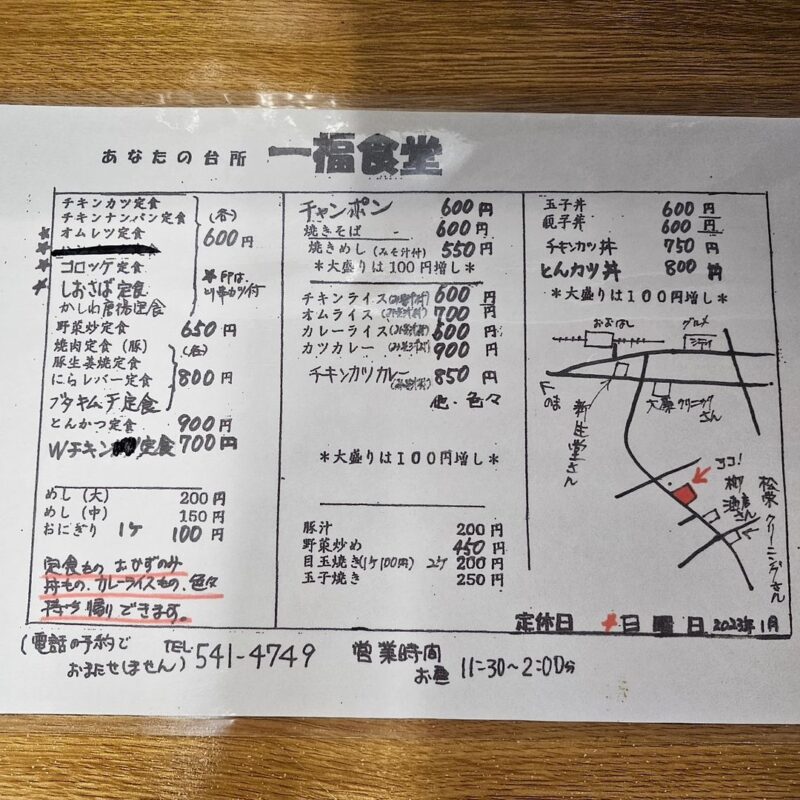 あなたの台所 一福食堂
チキンカツ定食
チキンナンバン定食 (各)
★オムレツ定食 600円
★
★コロッケ定食 ★印は、
★しおさば定食 カツ付
かしわ唐揚定食
野菜炒定食 650円
焼肉定食(豚) (各)
豚生姜焼定食
にらレバー定食 800円
ブタキムチ定食
とんかつ定食 900円
Wチキン定食 700円
めし(大) 200円
めし(中) 150円
おにぎり 1ケ 100円
定食もの おかずのみ
丼もの、カレーライスもの、色々
持ち帰りできます。
チャンポン 600円
焼きそば 600円
焼きめし(みそ汁付) 550円
*大盛りは100円増し*
チキンライス(みそ汁付) 600円
オムライス(みそ汁付) 700円
カレーライス(みそ汁付) 600円
カツカレー(みそ汁付) 900円
チキンカツカレー(みそ汁付) 850円
他、色々
*大盛りは100円増し*
豚汁 200円
野菜炒め 450円
目玉焼き(1ケ100円) 2ケ 200円
玉子焼き 250円
玉子丼 600円
親子丼 600円
チキンカツ丼 750円
とんカツ丼 800円
*大盛りは100円増し*
おおはし
グルメ
シティ
のま
新生堂さん
大藪クリーニングさん
ココ!
柳酒店さん
松栄クリーニングさん
定休日 日曜日 2023年1月
(電話の予約で
おまたせしません) TEL 541-4749
営業時間
お昼 11:30~2:00分